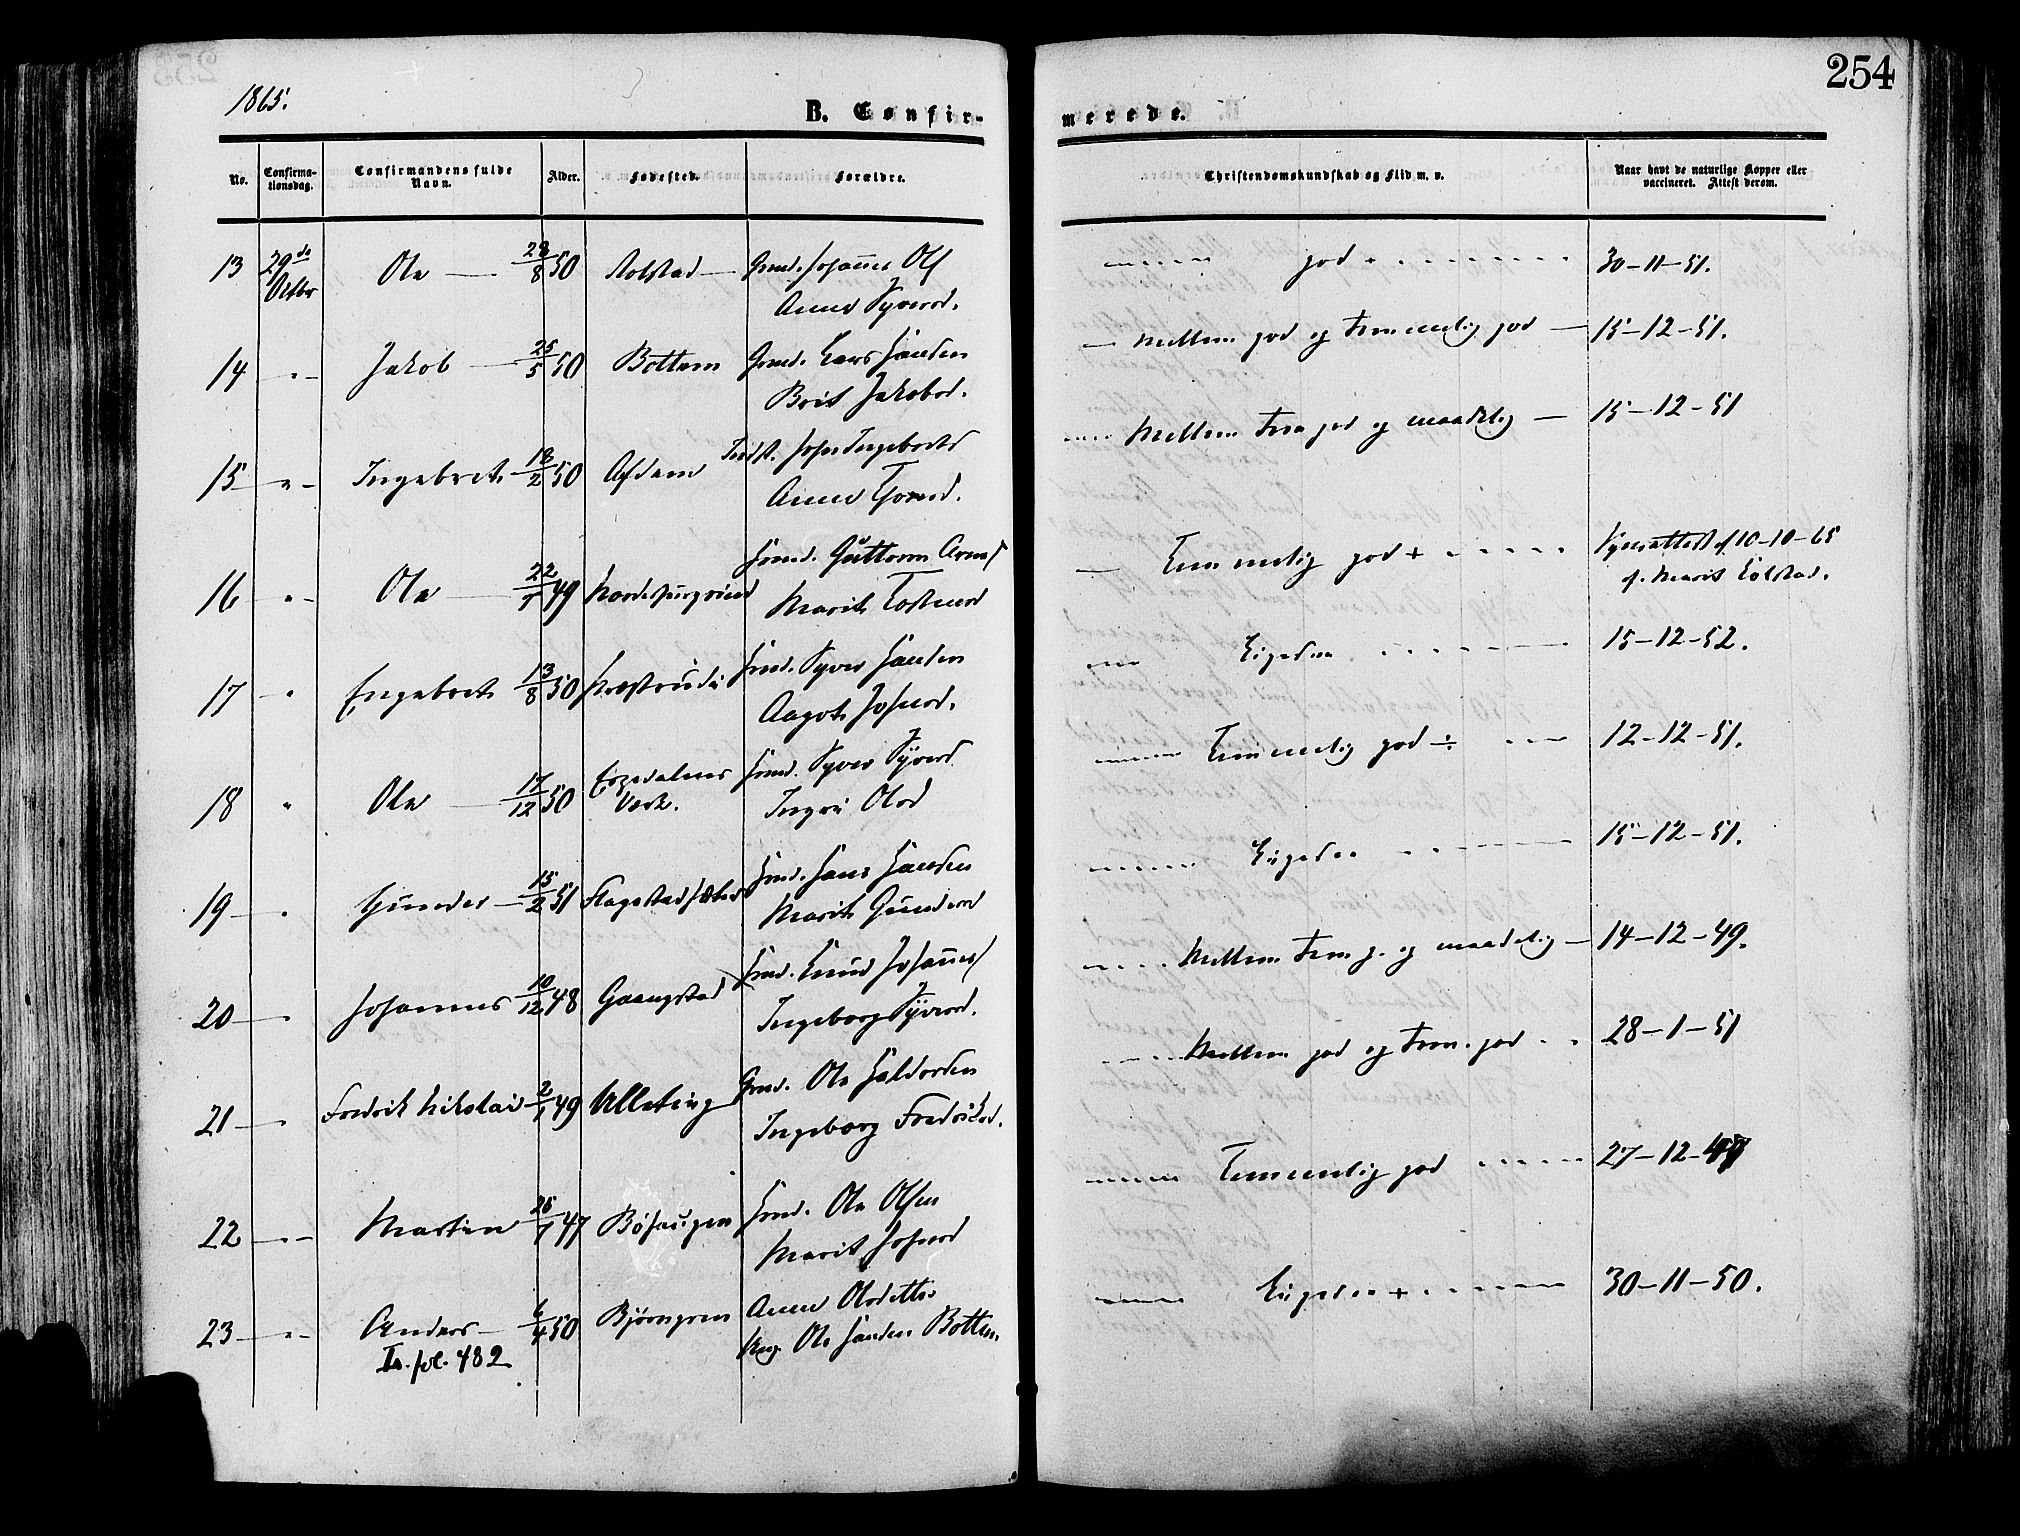 254
1865.
B. Confir-
merede.
No.
Confirma-
tionsdag.
Confirmandens fulde
Navn.
Alder.
Fødested.
Forældre.
Christendomskundskab og Flid m. v.
Naar havt de naturlige Kopper eller
vaccineret. Attest derom.
13 29de Octbr Ole 28/8 50 Rolstad Johannes Ols
Anne Syversd.
god + 30-11-51.
14 Jakob 25/5 50 Bottem Lars Hansen
Brit Jakobsd.
Mellem god og Temmelig god 15-12-51.
15 Ingebret 18/2 50 John Ingebrets
Anne
Mellem Tem god og maadelig 15-12-51
16 Ole 22/7 49 Guttorm Arnes
Marit Tostensd
Temmelig god + 10-10-65
Marit Kolstad.
17 Engebret 13/8 50 Syver Hansen
Aagot Johnsd.
Ligesaa 15-12-52.
18 Ole 17/12 50 Espedalens
Værk. Syver Syvers
Ingri Olsd
Temmelig god ÷ 12-12-51.
19 Gunder 15/2 51 Flagestadsæter Hans Hansen
Marit Gundersd
Ligesaa 15-12-51.
20 Johannes 10/12 48 Gaangstad Knud Johannes
Ingeborg Syversd.
Mellem Tem g. og maadelig 14-12-49.
21 Fredrik Nikolai 2/1 49 Ulleting Ole Haldorsen
Ingeborg Fredriksd.
Mellem god og Tem. god 28-1-51
22 Martin 26/7 47 Bøhaugen Ole Olsen
Marit Johnsd
Temmelig god 27-12-
23 Anders 6/4 50 Bjørngren Anne Olsdatter
Ung. Ole Hansen Bottem.
Ligesaa + 30-11-50.
fol. 482